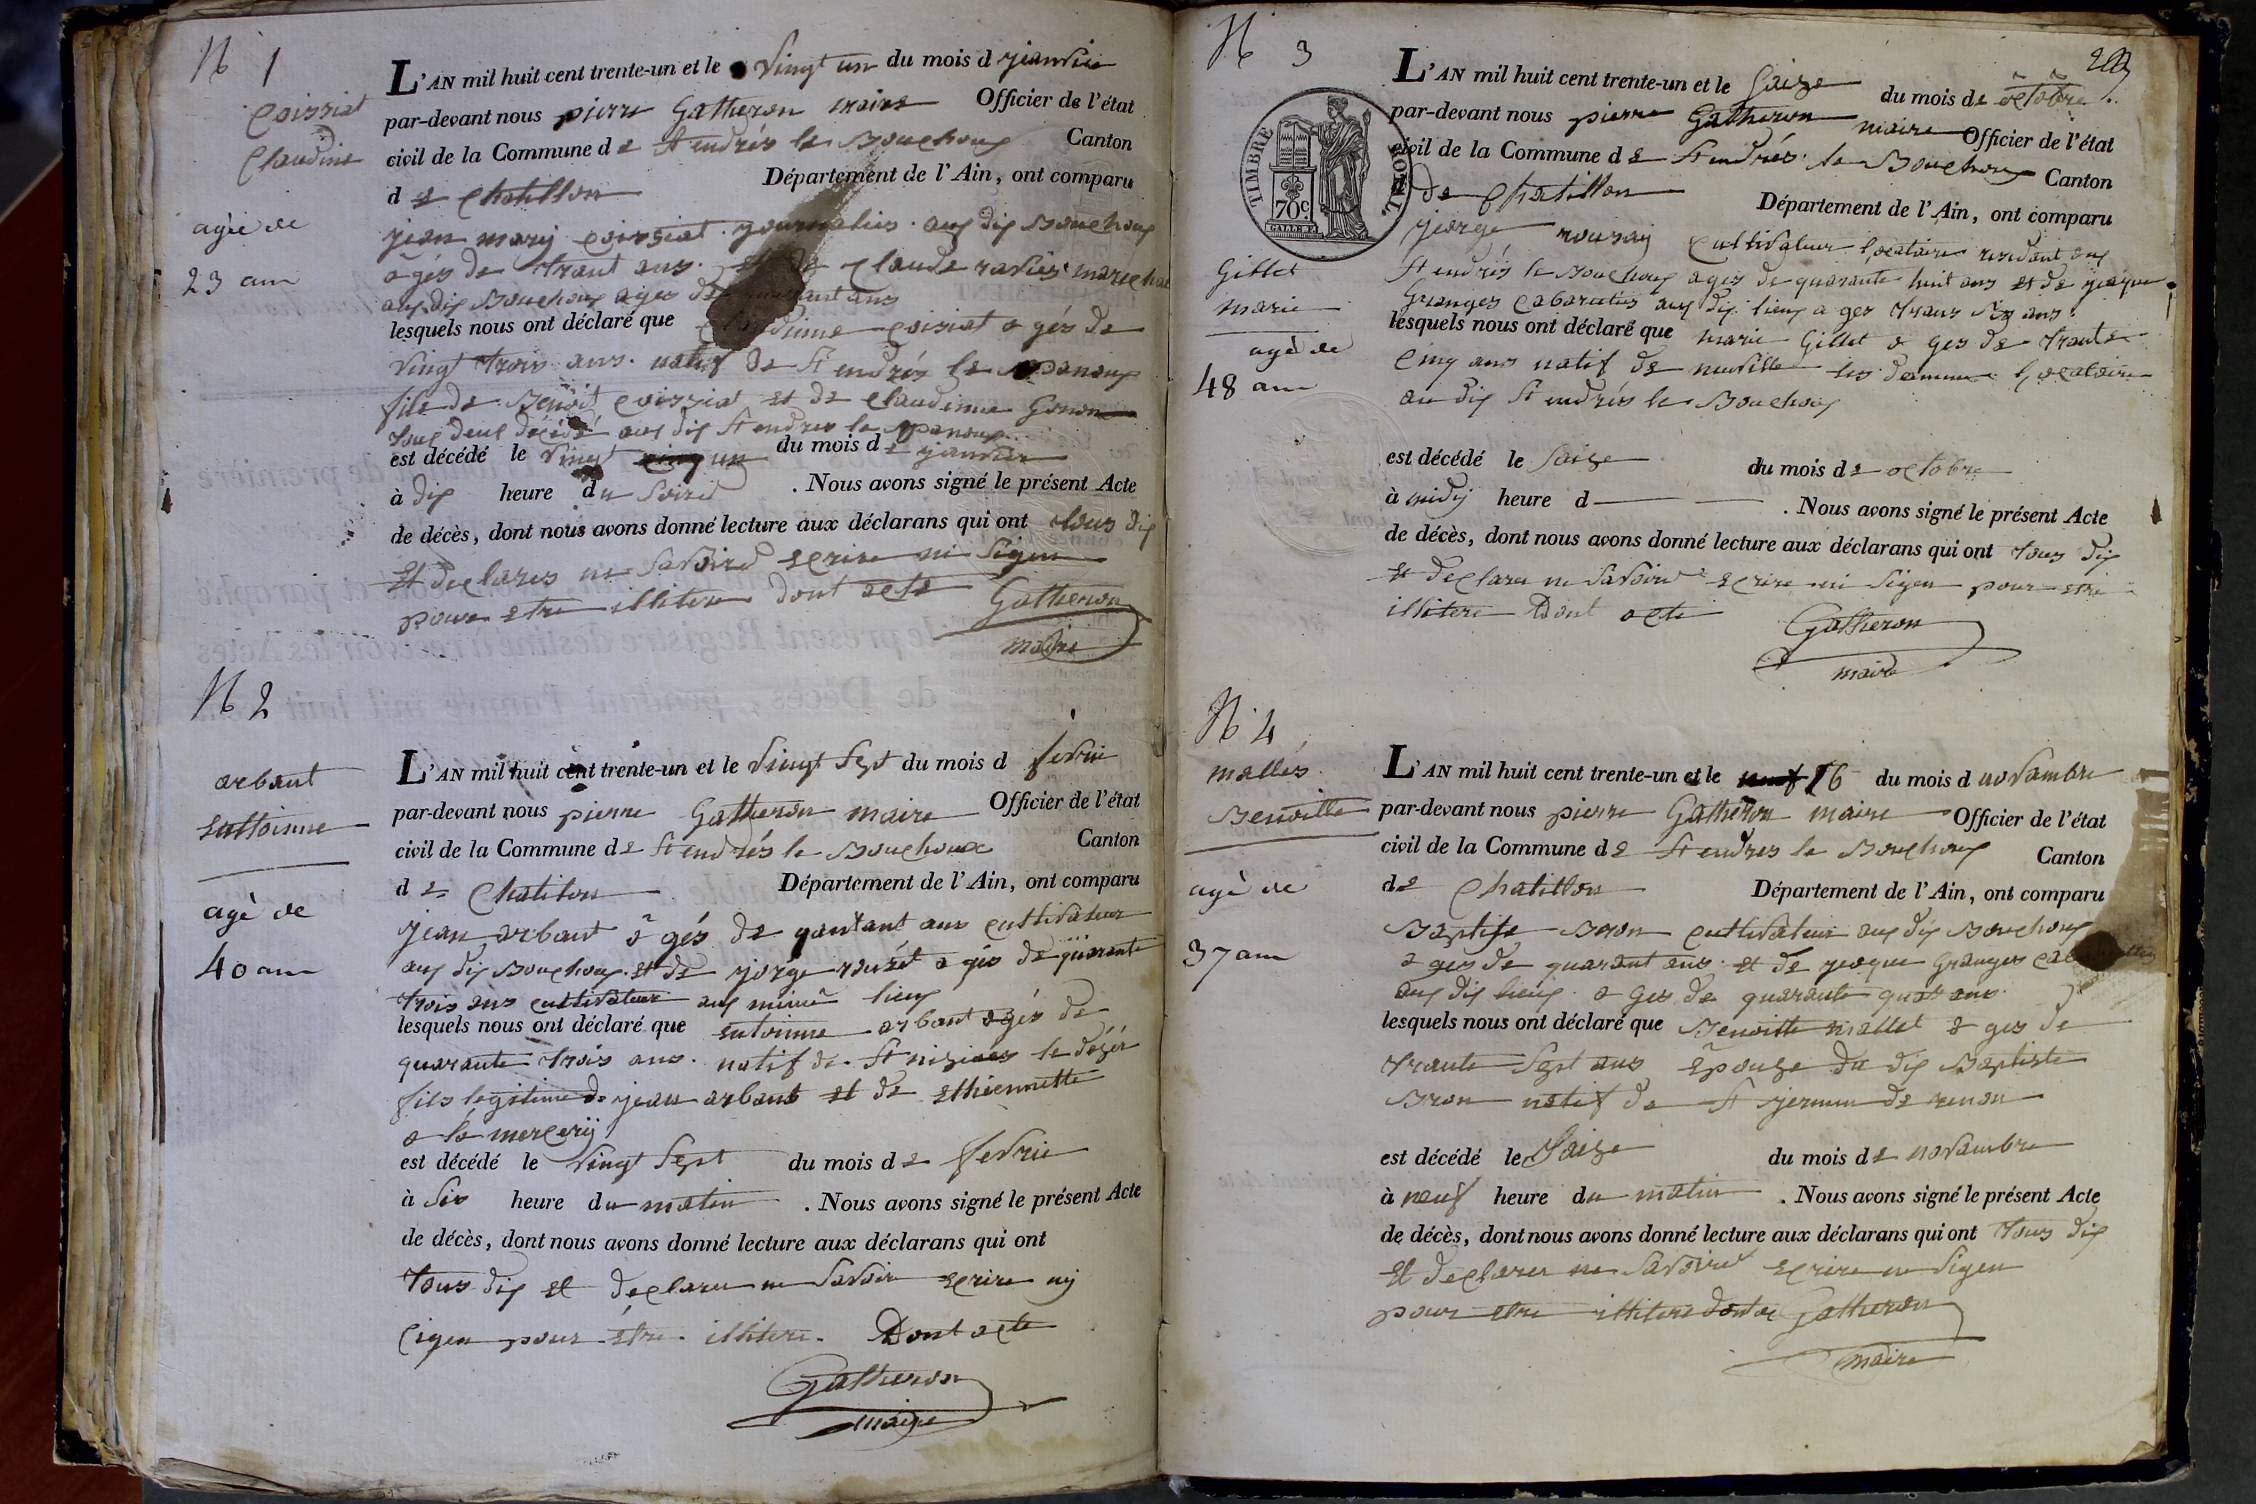 N 1
Coissiat
Claudine
agée de
23 ans
L'AN mil huit cent trente-un et le vingt un du mois d janvie
par-devant nous pierre Gatheron maire Officier de l'état
civil de la Commune de St endrés le Bouchoux Canton
de Chatillon Département de l'Ain, ont comparu
jean mary coissiat journalies aux dis Bouchoux
agés de trant ans et de Claude
aux dis Bouchoux ages de
lesquels nous ont déclaré que coissiat a gés de
vingt trois ans natif de St endrés le panoux
fils de Benoit coissiat et de claudinne Gonon
tous deux décédé aux dis St endres le panoux
est décédé le vingt un du mois de janvier
à dix heure du soire . Nous avons signé le présent Acte
de décès, dont nous avons donné lecture aux déclarans qui ont tous dis
et declares ne savoire ecrire ni sigen
pour etre illitere dont acte Gatheron
maire
N 2
arbant
entoinne
agé de
40 ans
L'AN mil huit cent trente-un et le vingt sept du mois d fevrie
par-devant nous pierre Gatheron maire Officier de l'état
civil de la Commune de St endrés le Bouchoux Canton
de Chatilon Département de l'Ain, ont comparu
jean arbant a gés de ans cultivateur
aux dis Bouchoux et de jorge a gés de quarante
trois ans cultivateur aux meime lieux
lesquels nous ont déclaré que entoinne arbant agés de
quarante trois ans natif de St nizies le dézér
fils legitime de jean arbant et de ethiennette
a la mercerij
est décédé le vingt sept du mois de fevrie
à six heure du matin . Nous avons signé le présent Acte
de décès, dont nous avons donné lecture aux déclarans qui ont
tous dis et declares ne savoir ecrire nij
cigen pour étre illitere Dont acte
Gatheron
maire
N 3
TIMBRE ROYAL
70c
Gillet
marie
agé de
48 ans
L'AN mil huit cent trente-un et le saize du mois de octobre
par-devant nous pierre Gatheron maire Officier de l'état
civil de la Commune de St endrés le Bouchoux Canton
de Chatillon Département de l'Ain, ont comparu
jeorge cultivateur locataire residant aux
St endrés le Bouchoux ages de quarante huit ans et de jeaque
Granges cabareties aux dis lieux a ges
lesquels nous ont déclaré que marie Gillet a ges de trante
cinq ans natif de neuville les damme locataire
au dis St endrés le Bouchoux
est décédé le saize du mois de octobre
à midij heure d . Nous avons signé le présent Acte
de décès, dont nous avons donné lecture aux déclarans qui ont tous dis
et declares ne savoire ecrire ni sigen pour etre
illitere Dont acte Gatheron
maire
N 4
mallés
Benoitte
agé de
37 ans
L'AN mil huit cent trente-un et le 16 du mois d novambre
par-devant nous pierre Gatheron maire Officier de l'état
civil de la Commune de St endres le Bouchoux Canton
de Chatillon Département de l'Ain, ont comparu
Baptiste Bron cultivateur aux dis Bouchoux
a ges de quarant ans et de jeaque Granges
aux dis lieux a ges de quarante ans
lesquels nous ont déclaré que Benoitte mallet a ges de
trante sept ans epouze du dis Baptiste
Bron natif de St jermun de renon
est décédé le saize du mois de novambre
à neuf heure du matin . Nous avons signé le présent Acte
de décès, dont nous avons donné lecture aux déclarans qui ont tous dis
et declares ne savoire ecrire ne sigen
pour etre illitere Gatheron
maire